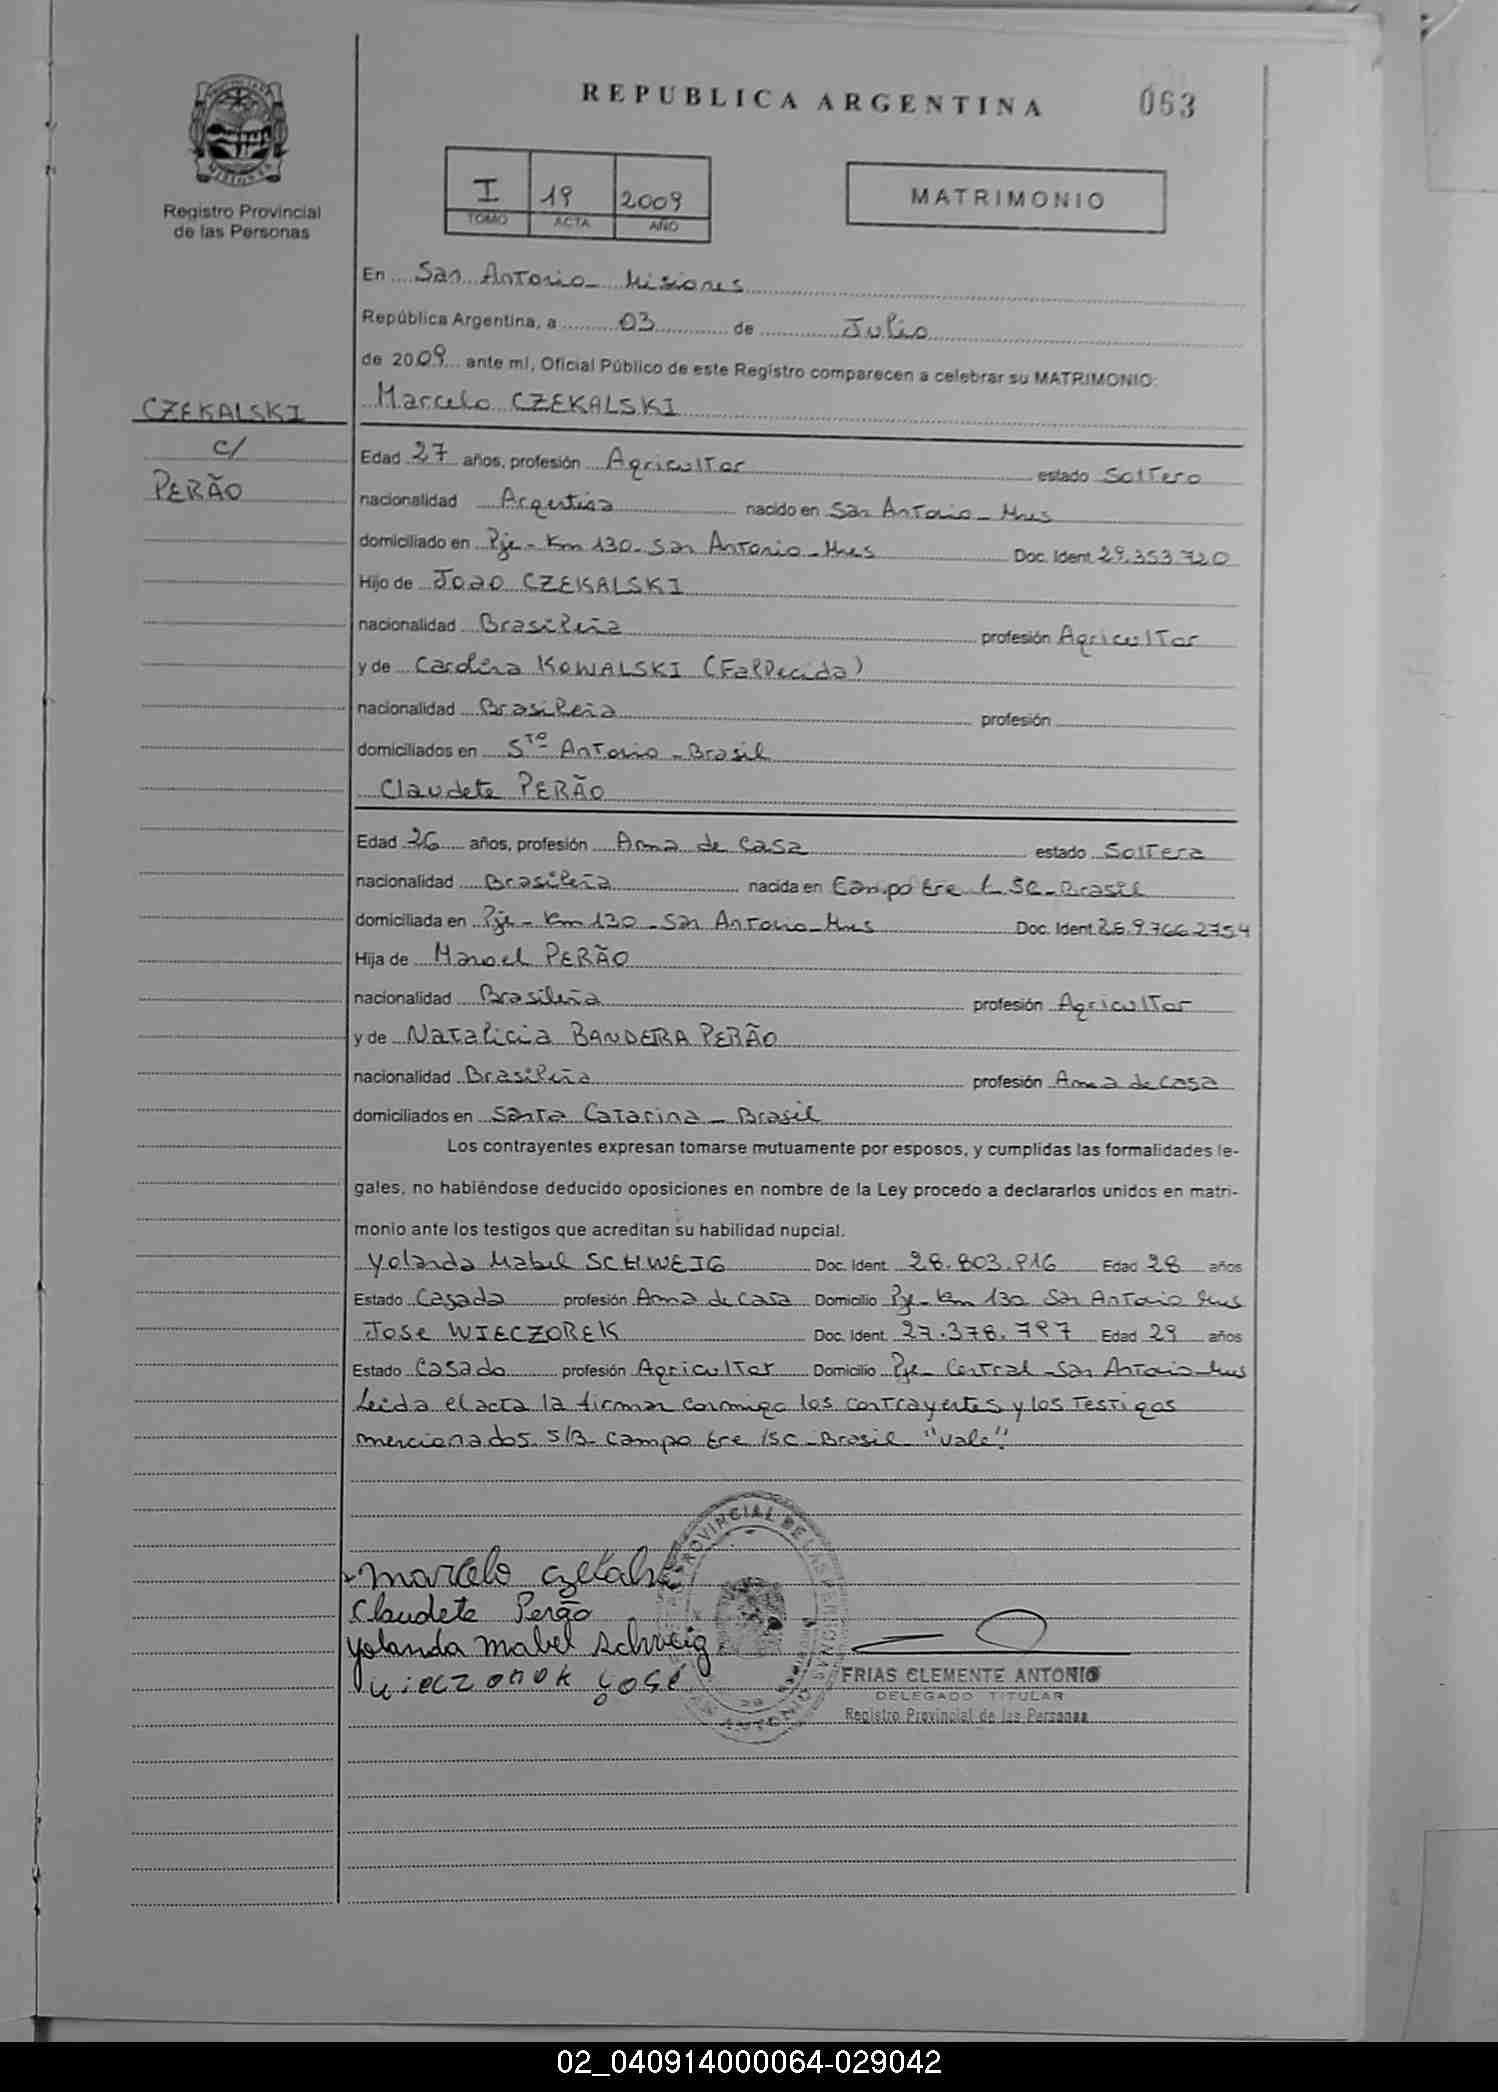 REPUBLICA ARGENTINA 063
Registro Provincial
de las Personas
I 19 2009
TOMO ACTA AÑO
MATRIMONIO
En San Antonio - Misiones
República Argentina, a 03 de Julio
de 2009 ante mí, Oficial Público de este Registro comparecen a celebrar su MATRIMONIO:
CZEKALSKI
c/
PERÃO
Marcelo CZEKALSKI
Edad 27 años, profesión Agricultor estado Soltero
nacionalidad Argentina nacido en San Antonio - Mnes
domiciliado en Pje - Km 130 - San Antonio - Mnes Doc. Ident. 29.353.720
Hijo de Joao CZEKALSKI
nacionalidad Brasileña profesión Agricultor
y de Carolina KOWALSKI (Fallecida)
nacionalidad Brasileña profesión
domiciliados en Sto Antonio - Brasil
Claudete PERÃO
Edad 26 años, profesión Ama de Casa estado Soltera
nacionalidad Brasileña nacida en Campo Ere SC - Brasil
domiciliada en Pje - Km 130 - San Antonio - Mnes Doc. Ident.
Hija de Manoel PERÃO
nacionalidad Brasileña profesión Agricultor
y de Natalicia BANDEIRA PERÃO
nacionalidad Brasileña profesión Ama de Casa
domiciliados en Santa Catarina - Brasil
Los contrayentes expresan tomarse mutuamente por esposos, y cumplidas las formalidades le-
gales, no habiéndose deducido oposiciones en nombre de la Ley procedo a declararlos unidos en matri-
monio ante los testigos que acreditan su habilidad nupcial.
Yolanda Mabel SCHWEIG Doc. Ident. 28.803.916 Edad 28 años
Estado Casada profesión Ama de Casa Domicilio Pje - Km 130 San Antonio Mnes
Jose WIECZOREK Doc. Ident. 27.378.797 Edad 29 años
Estado Casado profesión Agricultor Domicilio Pje - Central - San Antonio - Mnes
Leida el acta la firman conmigo los contrayentes y los Testigos
mencionados. S/B - Campo Ere /SC - Brasil "Vale".
Marcelo Czekalski
Claudete Perão
Yolanda Mabel Schweig
Wieczorek José
PROVINCIAL DE LAS PERSONAS
SAN ANTONIO
FRIAS CLEMENTE ANTONIO
DELEGADO TITULAR
Registro Provincial de las Personas
02_040914000064-029042